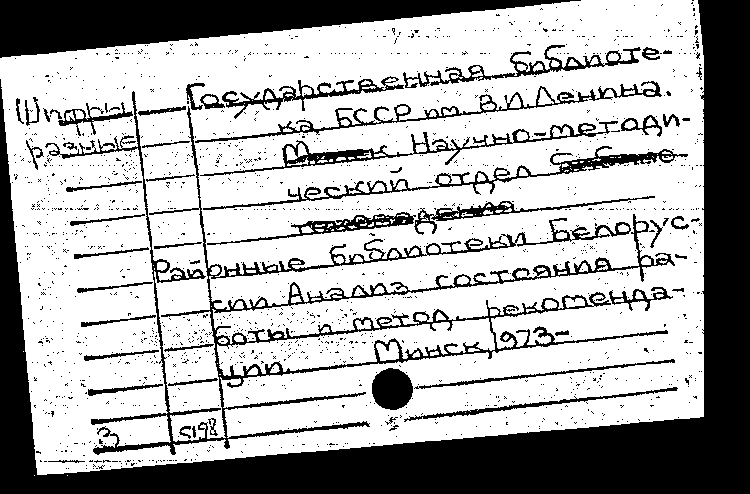 Шифры
разные
Государственная библиоте-
ка БССР им. В.И. Ленина.
Минск. Научно-методи-
ческий отдел библио
тековедения
Районные библиотеки Белорус-
сии. Анализ состояния ра-
боты и метод. рекоменда-
ции. Минск, 1973-
3 5198